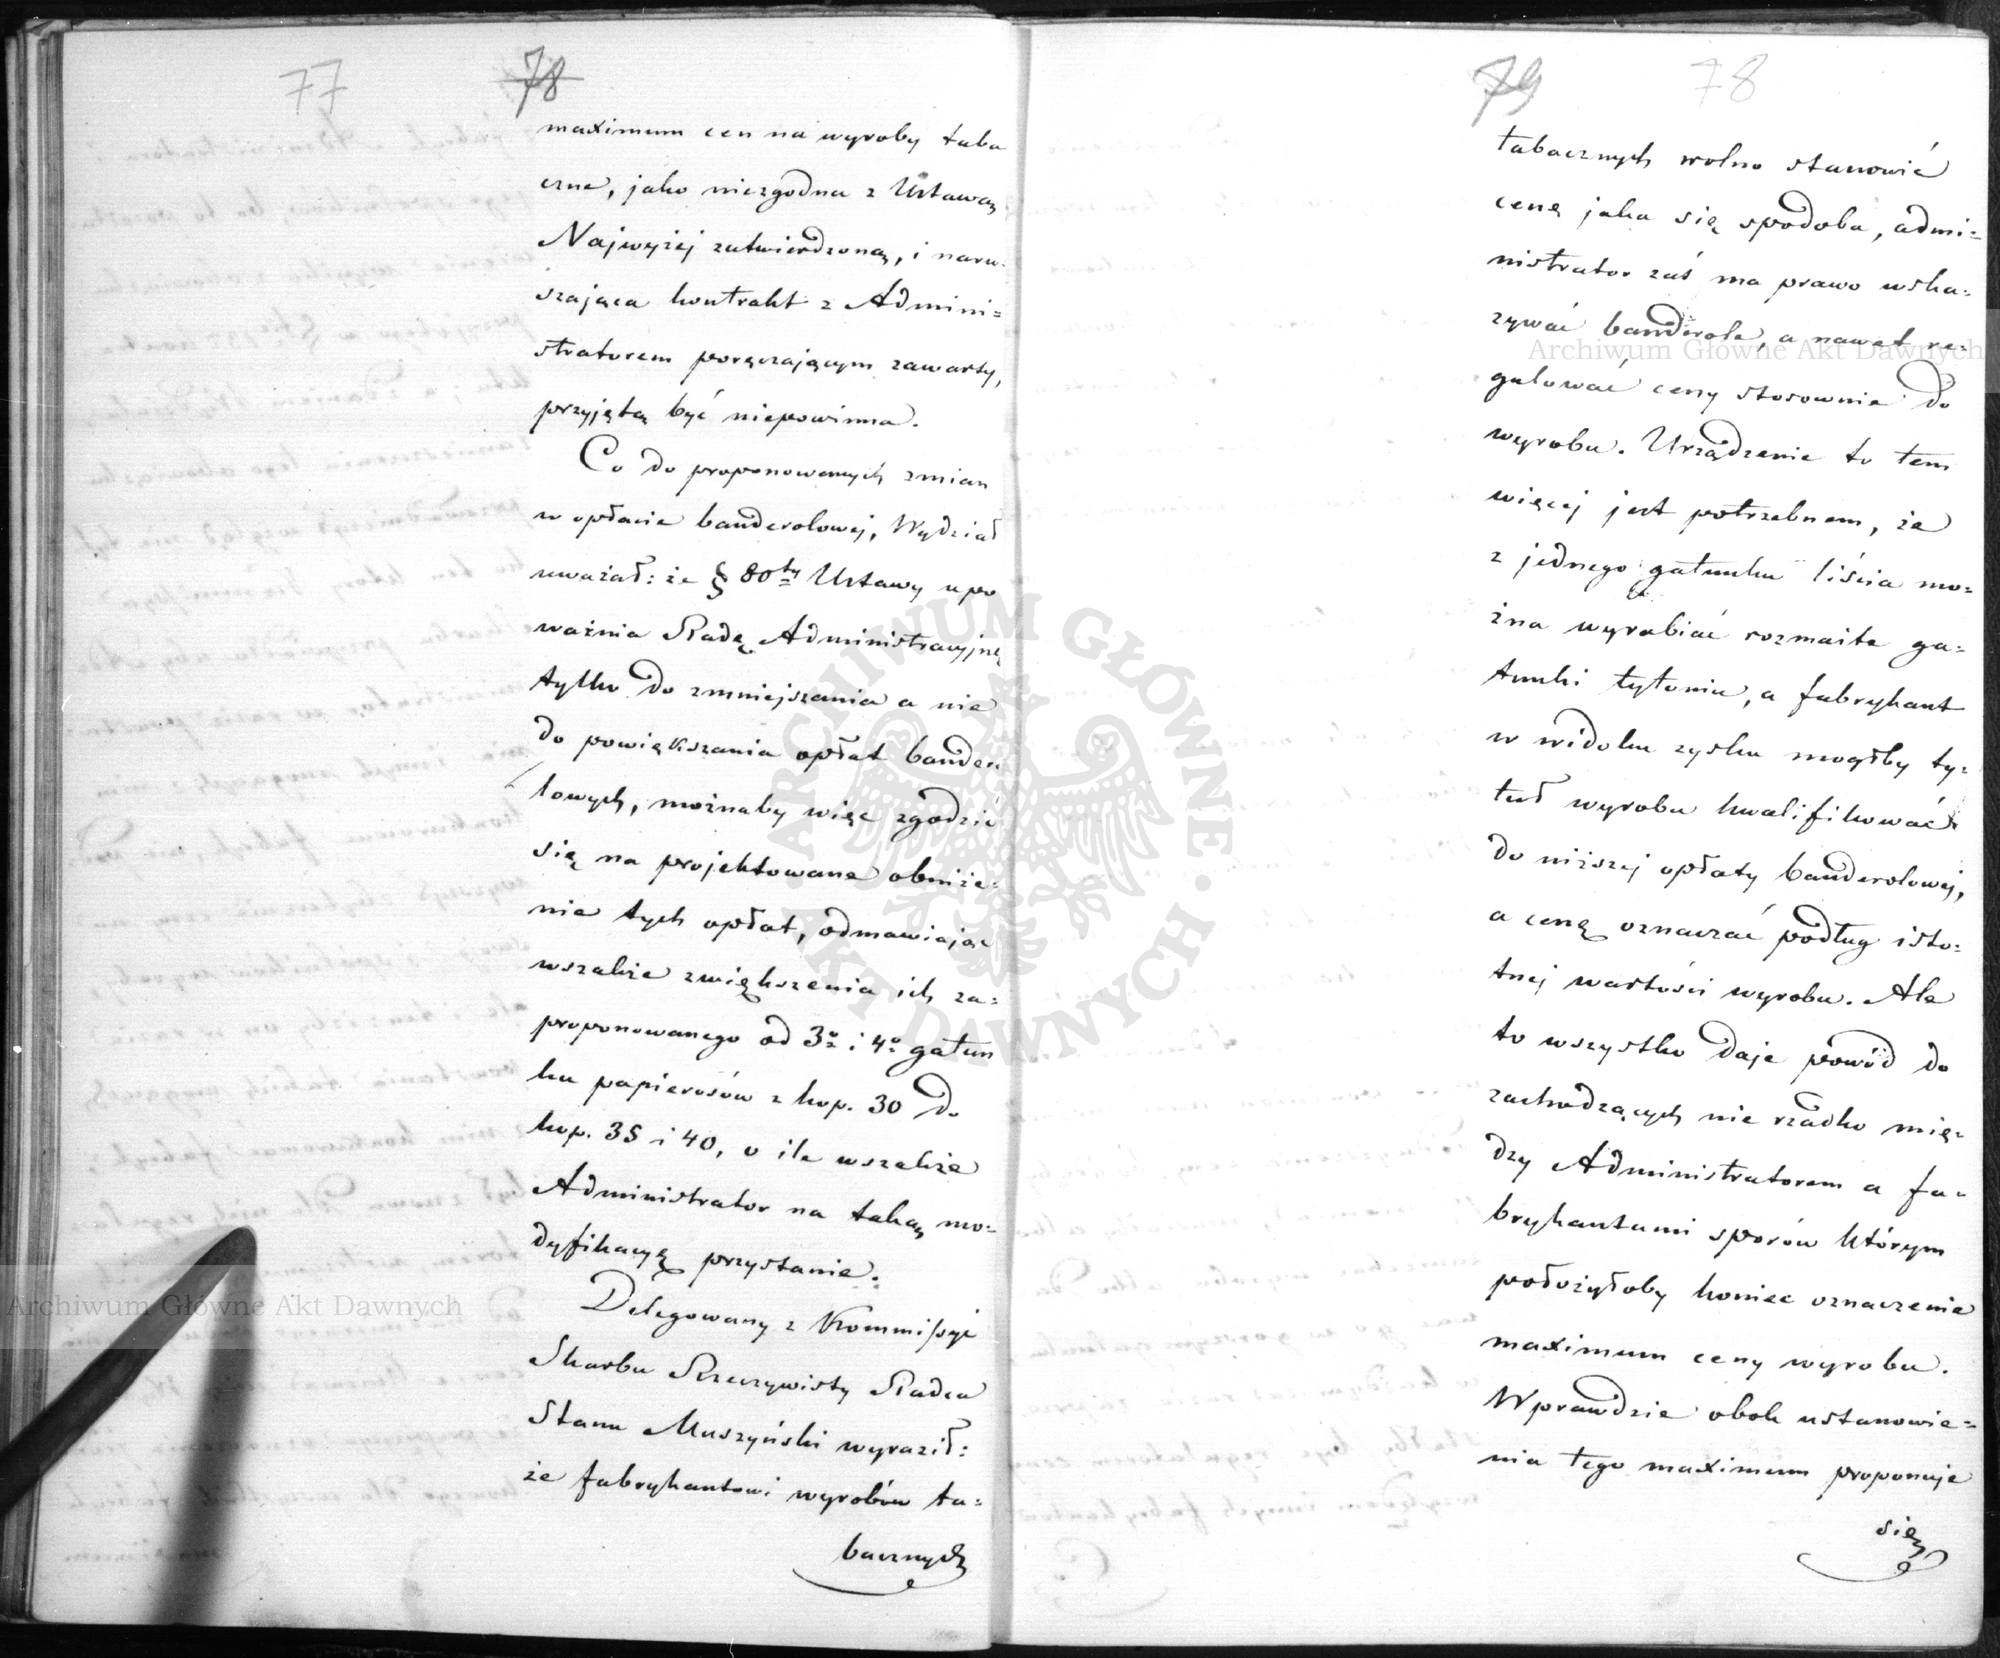 77
78
maximum cen na wyroby taba
czne, jako niezgodna z Ustawą
Najwyżej zatwierdzoną, i naru-
szająca kontrakt z Admini=
stratorem poręczającym zawarty,
przyjętą być niepowinna.
Co do proponowanych zmian
w opłacie banderolowej, Wydział
uważał: że § 80ty Ustawy upo
ważnia Radę Administracyjną
tylko do zmniejszania a nie
do powiększania opłat bandero
lowych, możnaby więc zgodzić
się na projektowane obniże=
nie tych opłat, odmawiając
wszakże zwiększenia ich za=
proponowanego od 3o i 4o gatun
ku papierosów z kop. 30 do
kop. 35 i 40, o ile wszakże
Administrator na taką mo=
dyfikacyę przystanie.
Delegowany z Kommissyi
Skarbu Rzeczywisty Radca
Stanu Muszyński wyraził:
że fabrykantowi wyrobów ta=
bacznych
79
78
tabacznych wolno stanowić
cenę jaka się spodoba, admi=
nistrator zaś ma prawo wska=
zywać banderole, a nawet re=
gulować ceny stosownie do
wyrobu. Urządzenie to tem
więcej jest potrzebnem, że
z jednego gatunku liścia mo=
żna wyrabiać rozmaite ga=
tunki tytoniu, a fabrykant
w widoku zysku mogłby ty=
tuł wyrobu kwalifikować
do niższej opłaty banderolowej,
a cenę oznaczać podług isto=
tnej wartości wyrobu. Ale
to wszystko daje powód do
zachodzących nie rzadko mię=
dzy Administratorem a fa=
brykantami sporów którym
położyłoby koniec oznaczenie
maximum ceny wyrobu.
Wprawdzie obok ustanowie=
nia tego maximum proponuje
się
Archiwum Główne Akt Dawnych
Archiwum Główne Akt Dawnych
ARCHIWUM GŁÓWNE
AKT DAWNYCH